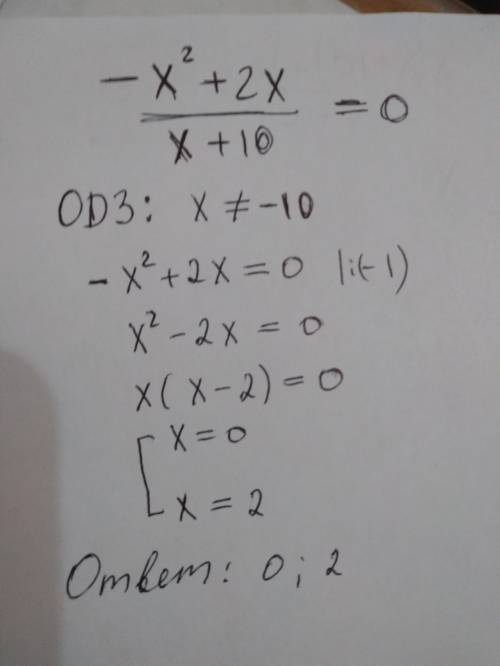 -x² + 2x
x + 10
= 0
ОДЗ: x ≠ -10
-x² + 2x = 0 |:(-1)
x² - 2x = 0
x(x - 2) = 0
[ x = 0
x = 2
Ответ: 0; 2